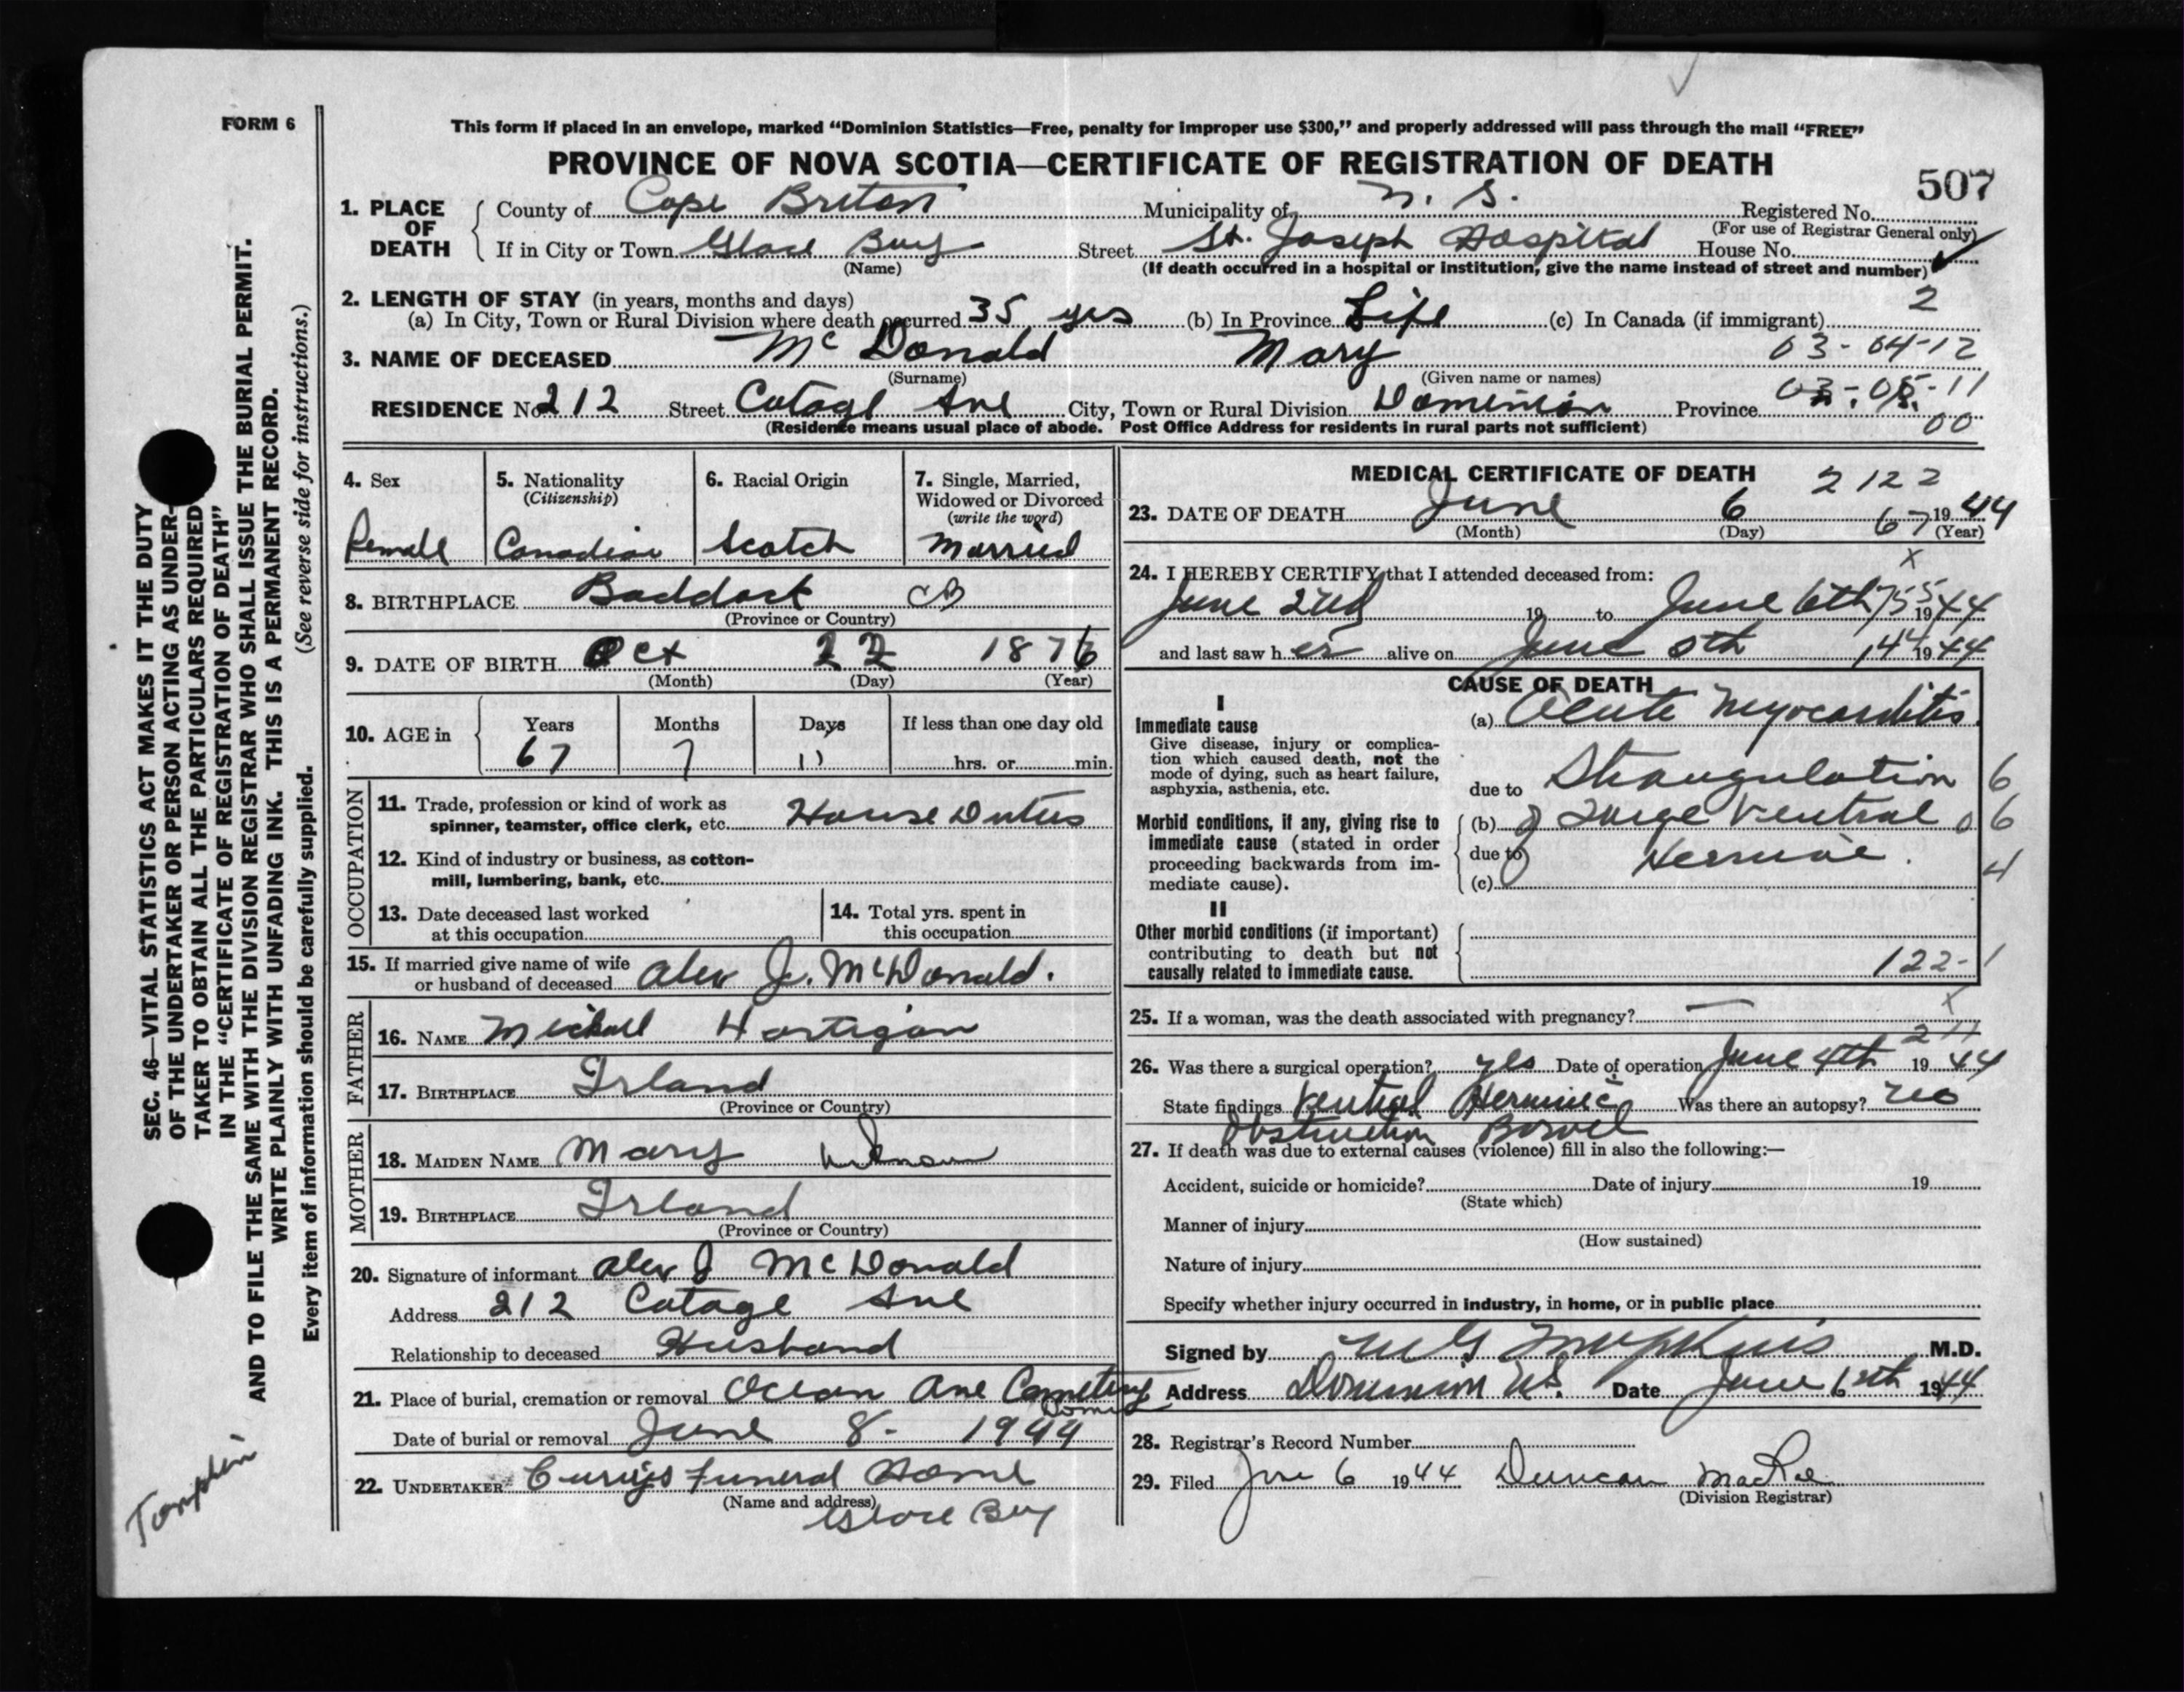 FORM 6
This form if placed in an envelope, marked “Dominion Statistics—Free, penalty for improper use $300,” and properly addressed will pass through the mail “FREE”
PROVINCE OF NOVA SCOTIA—CERTIFICATE OF REGISTRATION OF DEATH
507
1. PLACE OF DEATH County of Cape Breton Municipality of N. S. Registered No.
(For use of Registrar General only)
If in City or Town Glace Bay Street St. Joseph Hospital House No.
(Name) (If death occurred in a hospital or institution, give the name instead of street and number)
2. LENGTH OF STAY (in years, months and days) 2
(a) In City, Town or Rural Division where death occurred 35 yrs (b) In Province Life (c) In Canada (if immigrant)
3. NAME OF DECEASED Mc Donald Mary 03-04-12
(Surname) (Given name or names) 03-05-11
RESIDENCE No. 212 Street Cotage Ave City, Town or Rural Division Dominion Province 00
(Residence means usual place of abode. Post Office Address for residents in rural parts not sufficient)
4. Sex Female
5. Nationality (Citizenship) Canadian
6. Racial Origin Scotch
7. Single, Married, Widowed or Divorced (write the word) Married
8. BIRTHPLACE Baddack CB
(Province or Country)
9. DATE OF BIRTH Oct 22 1876
(Month) (Day) (Year)
10. AGE in Years Months Days If less than one day old
67 7 11 hrs. or min.
OCCUPATION
11. Trade, profession or kind of work as
spinner, teamster, office clerk, etc. House Duties
12. Kind of industry or business, as cotton-
mill, lumbering, bank, etc.
13. Date deceased last worked
at this occupation
14. Total yrs. spent in
this occupation
15. If married give name of wife
or husband of deceased Alex J. McDonald.
FATHER
16. NAME Michall Hartigan
17. BIRTHPLACE Irland
(Province or Country)
MOTHER
18. MAIDEN NAME Mary Unknown
19. BIRTHPLACE Irland
(Province or Country)
20. Signature of informant Alex J McDonald
Address 212 Cotage Ave
Relationship to deceased Husband
21. Place of burial, cremation or removal Ocean Ave Cemetery
Date of burial or removal June 8 - 1944
22. UNDERTAKER Curry's Funeral Home
(Name and address)
Glace Bay
MEDICAL CERTIFICATE OF DEATH 2122
23. DATE OF DEATH June 6 1944
(Month) (Day) (Year)
67
24. I HEREBY CERTIFY that I attended deceased from:
June 2nd 19 to June 6th 1944
and last saw her alive on June 5th 1944
CAUSE OF DEATH
I
Immediate cause (a) Acute Myocarditis
Give disease, injury or complica-
tion which caused death, not the
mode of dying, such as heart failure,
asphyxia, asthenia, etc.
due to Strangulation 6
Morbid conditions, if any, giving rise to
immediate cause (stated in order
proceeding backwards from im-
mediate cause).
(b) of Large Ventral 06
due to Herniae. 4
(c)
II
Other morbid conditions (if important)
contributing to death but not
causally related to immediate cause. 122-1
25. If a woman, was the death associated with pregnancy? —
26. Was there a surgical operation? yes Date of operation June 4th 1944
State findings Ventral Herniae Was there an autopsy? no
Obstruction Bowel
27. If death was due to external causes (violence) fill in also the following:—
Accident, suicide or homicide? Date of injury 19
(State which)
Manner of injury
(How sustained)
Nature of injury
Specify whether injury occurred in industry, in home, or in public place
Signed by MG Tompkins M.D.
Address Dominion NS. Date June 1944
28. Registrar's Record Number
29. Filed June 6 1944 Duncan MacRae
(Division Registrar)
SEC. 46—VITAL STATISTICS ACT MAKES IT THE DUTY
OF THE UNDERTAKER OR PERSON ACTING AS UNDER-
TAKER TO OBTAIN ALL THE PARTICULARS REQUIRED
IN THE “CERTIFICATE OF REGISTRATION OF DEATH”
AND TO FILE THE SAME WITH THE DIVISION REGISTRAR WHO SHALL ISSUE THE BURIAL PERMIT.
WRITE PLAINLY WITH UNFADING INK. THIS IS A PERMANENT RECORD.
Every item of information should be carefully supplied. (See reverse side for instructions.)